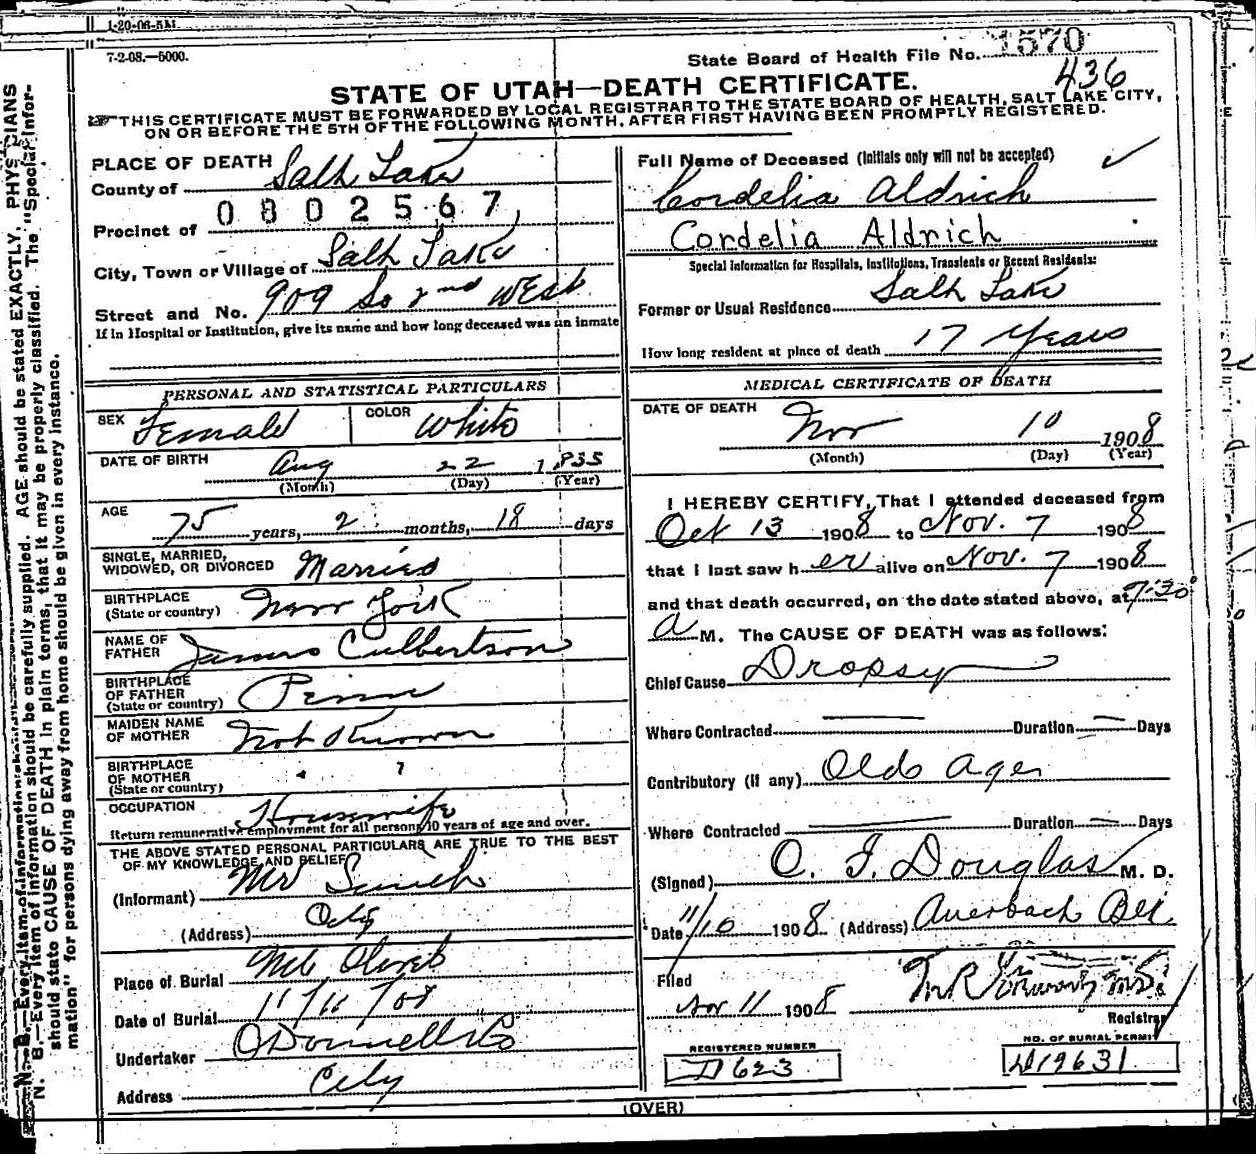 1-20-06-5M.
7-2-08.—5000.
State Board of Health File No. 1570
436
STATE OF UTAH—DEATH CERTIFICATE.
THIS CERTIFICATE MUST BE FORWARDED BY LOCAL REGISTRAR TO THE STATE BOARD OF HEALTH, SALT LAKE CITY,
ON OR BEFORE THE 5TH OF THE FOLLOWING MONTH, AFTER FIRST HAVING BEEN PROMPTLY REGISTERED.
PLACE OF DEATH
County of Salt Lake
0802567
Precinct of
City, Town or Village of Salt Lake
Street and No. 909 So 2nd West
If in Hospital or Institution, give its name and how long deceased was an inmate
Full Name of Deceased (Initials only will not be accepted)
Cordelia Aldrich
Cordelia Aldrich
Special Information for Hospitals, Institutions, Transients or Recent Residents:
Former or Usual Residence Salt Lake
How long resident at place of death 17 Years
PERSONAL AND STATISTICAL PARTICULARS
SEX Female COLOR White
DATE OF BIRTH Aug 22 1835
(Month) (Day) (Year)
AGE 75 years, 2 months, 18 days
SINGLE, MARRIED,
WIDOWED, OR DIVORCED Married
BIRTHPLACE
(State or country) New York
NAME OF
FATHER James Culbertson
BIRTHPLACE
OF FATHER
(State or country) Penn
MAIDEN NAME
OF MOTHER Not Known
BIRTHPLACE
OF MOTHER
(State or country) " ?
OCCUPATION Housewife
Return remunerative employment for all persons 10 years of age and over.
THE ABOVE STATED PERSONAL PARTICULARS ARE TRUE TO THE BEST
OF MY KNOWLEDGE AND BELIEF
(Informant) Mr Smith
(Address) City
Place of Burial Mt Olivet
Date of Burial 11/11/08
Undertaker O'Donnell & Co
Address City
MEDICAL CERTIFICATE OF DEATH
DATE OF DEATH Nov 10 1908
(Month) (Day) (Year)
I HEREBY CERTIFY, That I attended deceased from
Oct 13 1908 to Nov. 7 1908
that I last saw her alive on Nov. 7 1908
and that death occurred, on the date stated above, at 7:30
A M. The CAUSE OF DEATH was as follows:
Chief Cause Dropsy
Where Contracted — Duration — Days
Contributory (if any) Old Age
Where Contracted — Duration — Days
(Signed) O. F. Douglas M. D.
Date 11/10 1908 (Address) Auerbach
Filed
Nov 11 1908
Registrar
REGISTERED NUMBER
D 623
NO. OF BURIAL PERMIT
D19631
(OVER)
N. B.—Every item of information should be carefully supplied. AGE should be stated EXACTLY. PHYSICIANS
should state CAUSE OF DEATH in plain terms, that it may be properly classified. The "Special Infor-
mation" for persons dying away from home should be given in every instance.